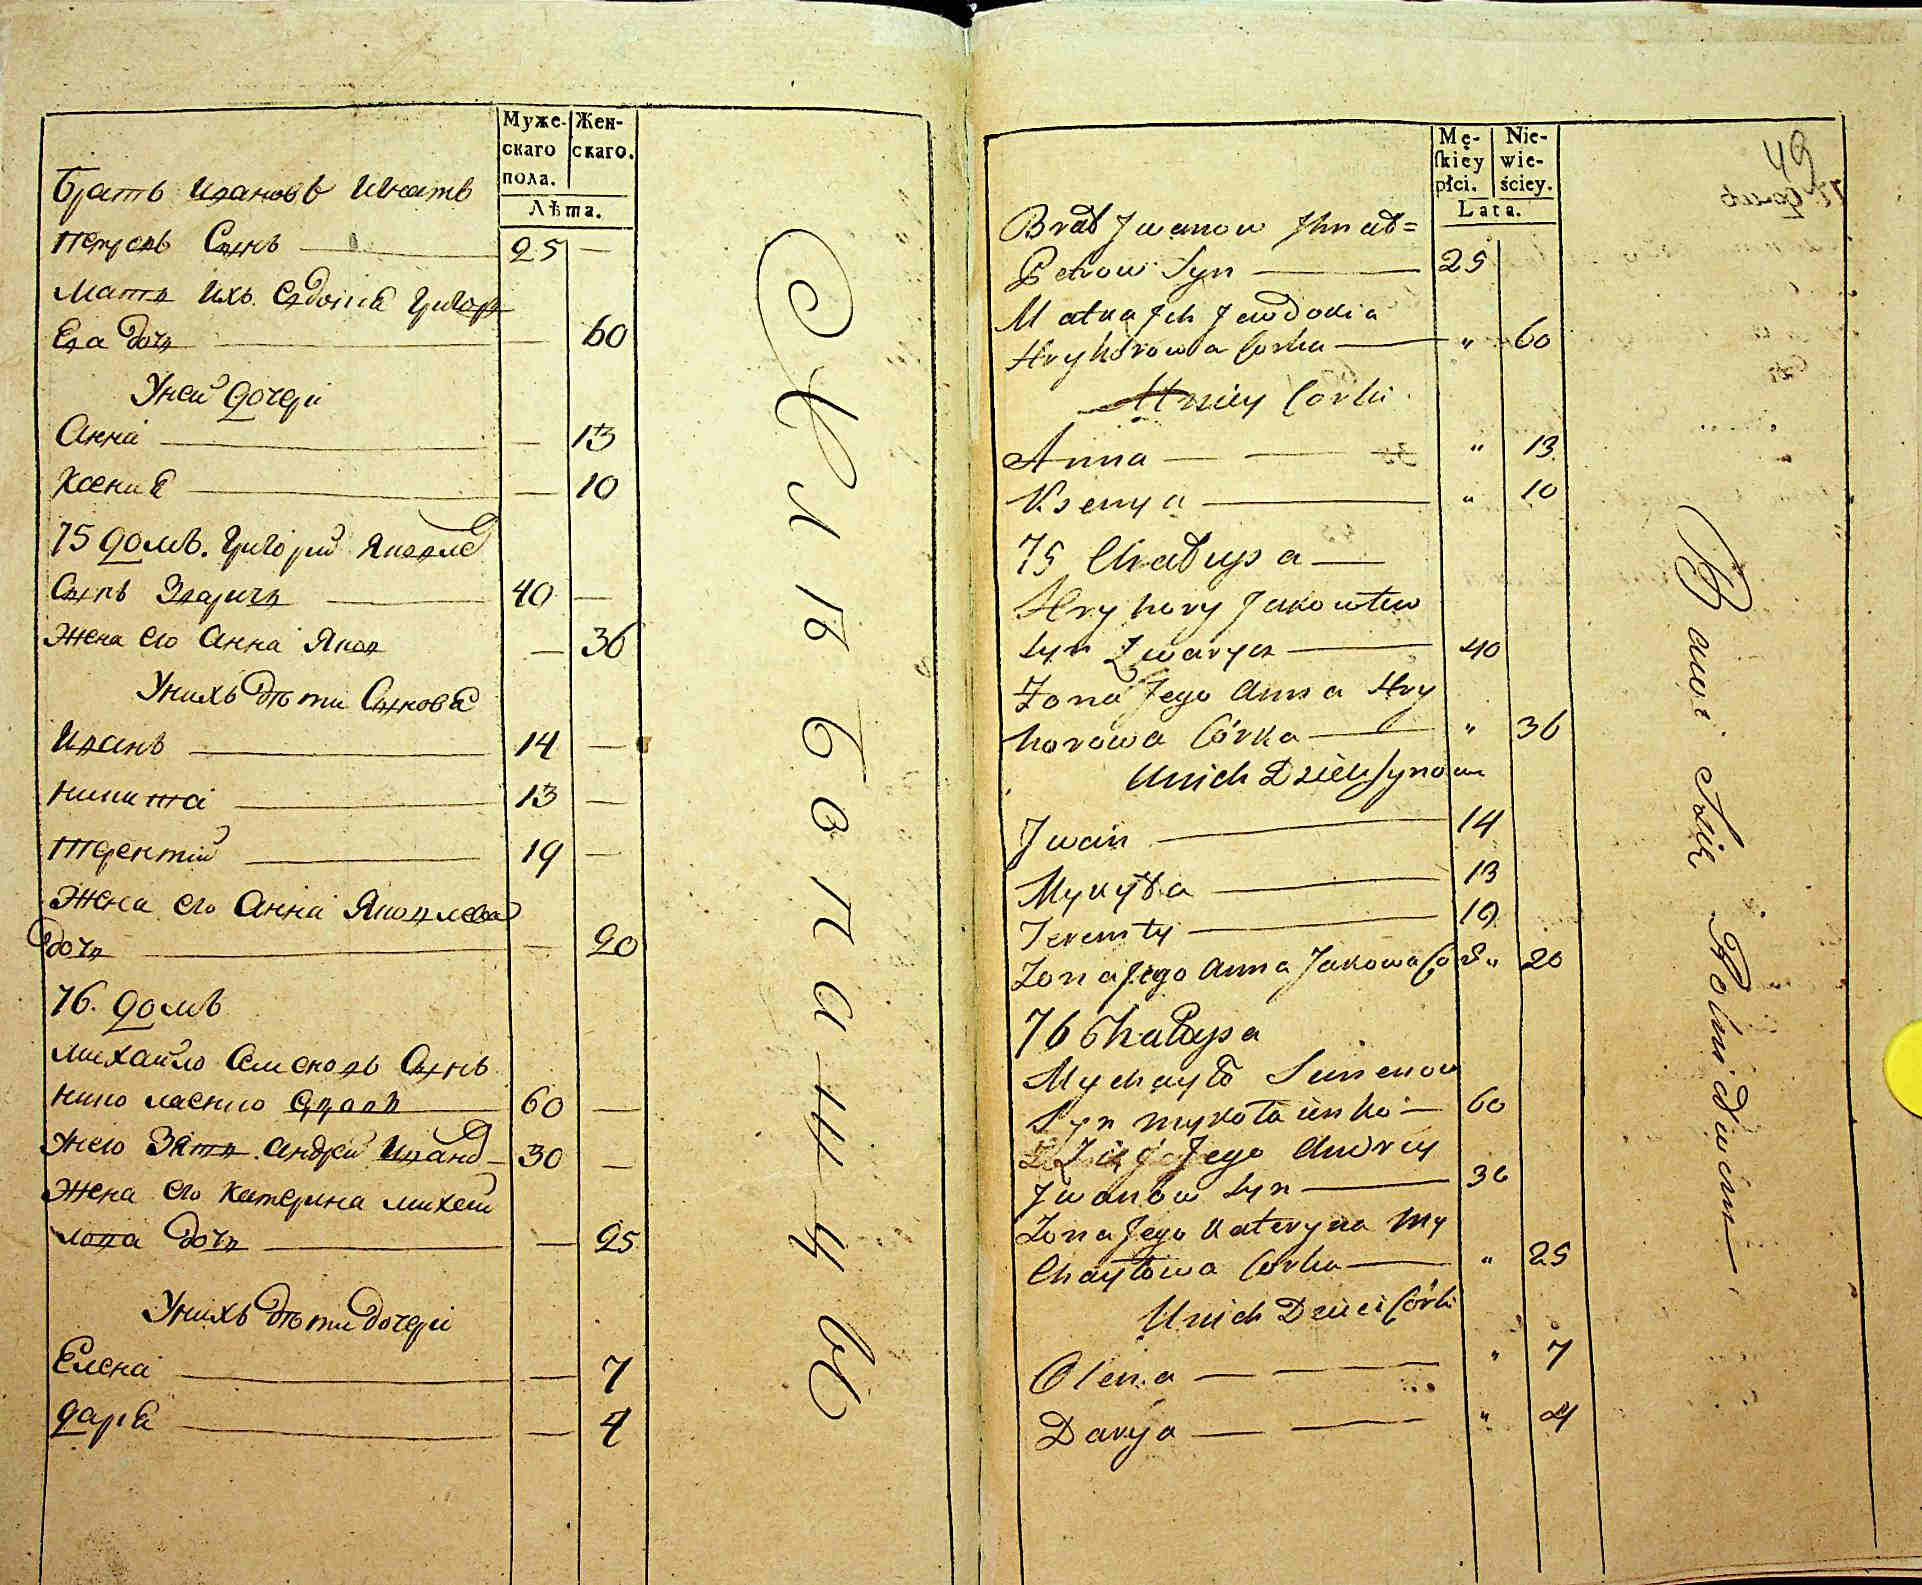 Муже-
скаго
пола.
Жен-
скаго.
Лѣта.
Братъ Ивановъ Игнатъ
Петровъ Сынъ 25 —
Мать Ихъ Евдокіа Григорь
Ева дочь — 60
Унеи дочери
Анна — 13
Ксениа — 10
75 домъ. Григорий Яковле
Сынъ Зваричь 40 —
Жена его Анна Яков — 36
Унихъ дѣти Сыновя
Иванъ 14 —
Никита 13 —
Терентий 19 —
Жена его Анна Яковлева
дочь — 20
76. домъ
Михайло Семеновъ Сынъ
60 —
Зять Андрей Иван 30 —
Жена его Катерина Михай
лова дочь — 25
Унихъ дѣти дочери
Елена — 7
Дарѣа — 4
Mę-
ſkiey
płci.
Nie-
wie-
ściey.
Lata.
49
Brat Jwanow Jhnat=
Petrow Syn 25
Matka Jch Jewdokia
Hryhorowa Corka " 60
Uniey Corki
Anna " 13
Ksenya " 10
75 Chałupa
Hryhory Jakowlew
Syn Zwarycz 40
Żona Jego Anna Hry
horowa Córka " 36
Unich Dzieci Synow
Jwan 14
Mykyta 13
Teremty 19
Zona Jego Anna Jakowa Co " 20
76 Chałupa
Mychayło Semenow
Syn 60
Jego Andrey
Jwanow Syn 30
Zona Jego Kateryna My
chayłowa Corka " 25
Unich Dzieci Córki
Olena " 7
Darya " 4